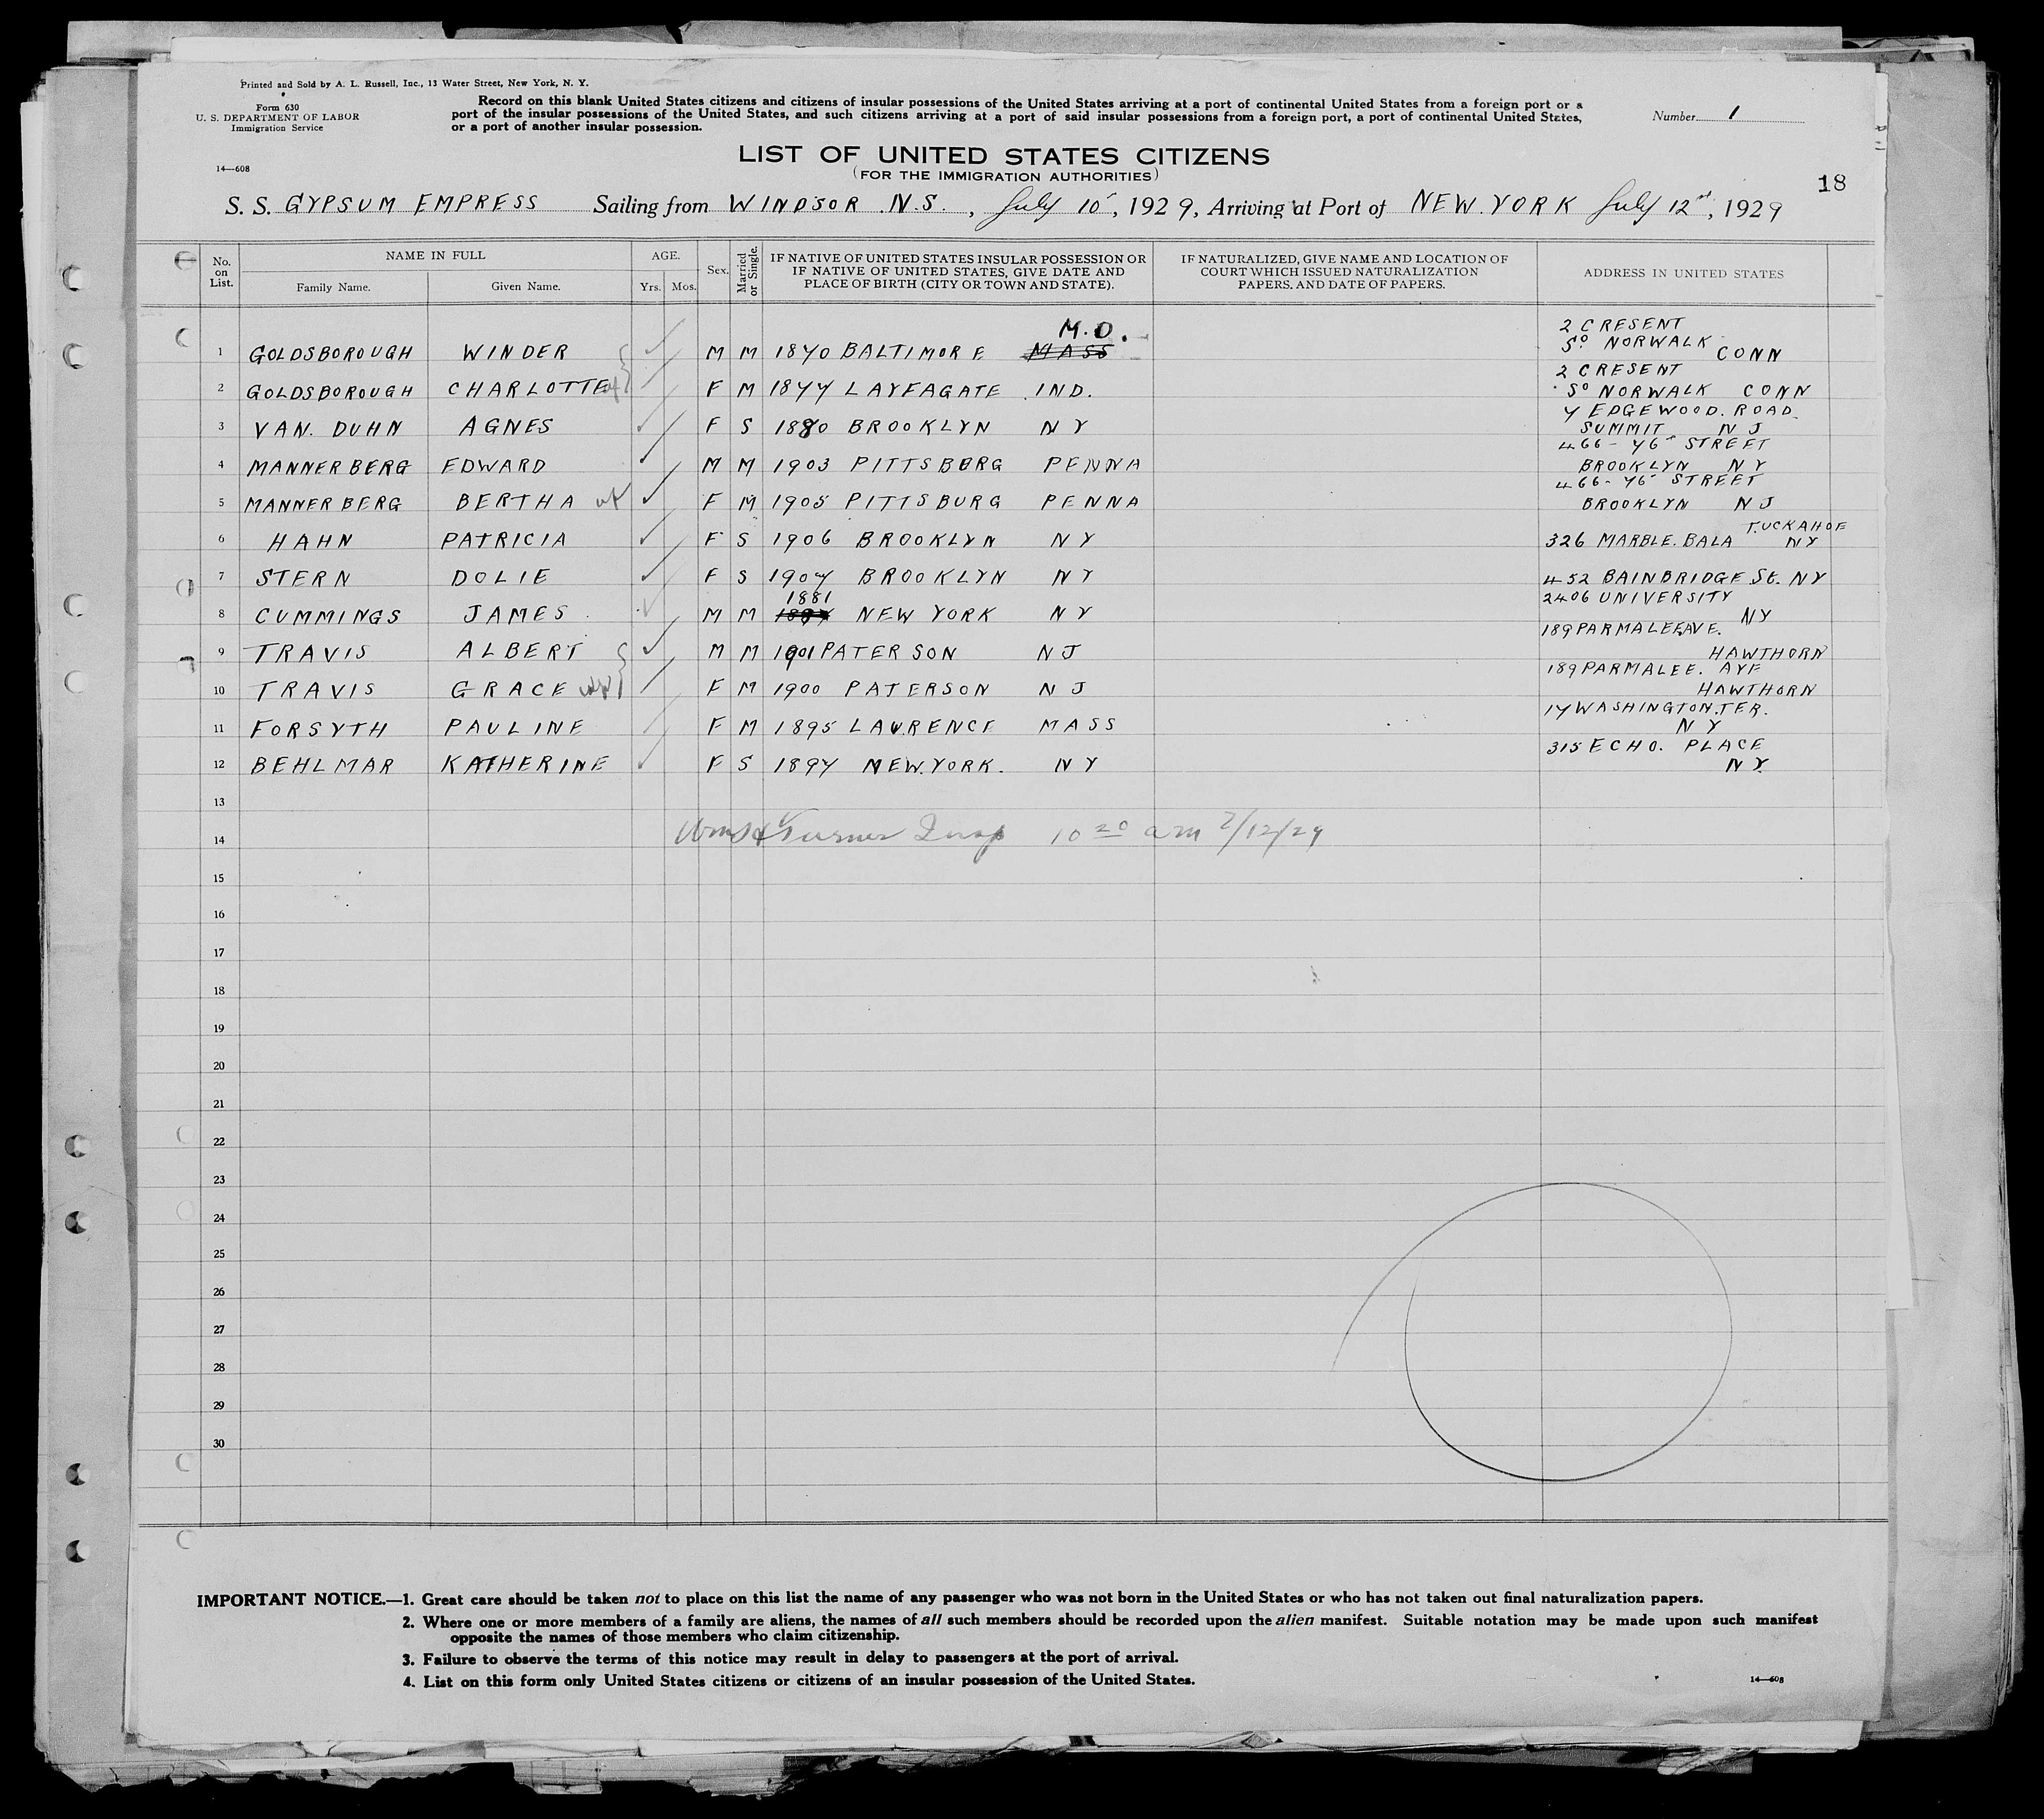 Printed and Sold by A. L. Russell, Inc., 13 Water Street, New York, N. Y.
Form 630
U. S. DEPARTMENT OF LABOR
Immigration Service
14—608
Record on this blank United States citizens and citizens of insular possessions of the United States arriving at a port of continental United States from a foreign port or a
port of the insular possessions of the United States, and such citizens arriving at a port of said insular possessions from a foreign port, a port of continental United States,
or a port of another insular possession.
Number 1
LIST OF UNITED STATES CITIZENS
(FOR THE IMMIGRATION AUTHORITIES)
18
S. S. GYPSUM EMPRESS Sailing from WINDSOR N.S., July 10, 1929, Arriving at Port of NEW YORK July 12, 1929
No. on List. NAME IN FULL AGE. Sex. Married or Single. IF NATIVE OF UNITED STATES INSULAR POSSESSION OR IF NATIVE OF UNITED STATES, GIVE DATE AND PLACE OF BIRTH (CITY OR TOWN AND STATE). IF NATURALIZED, GIVE NAME AND LOCATION OF COURT WHICH ISSUED NATURALIZATION PAPERS, AND DATE OF PAPERS. ADDRESS IN UNITED STATES
Family Name. Given Name. Yrs. Mos.
1 GOLDSBOROUGH WINDER M M 1870 BALTIMORE MASS M.D. 2 CRESENT So NORWALK CONN
2 GOLDSBOROUGH CHARLOTTE wf F M 1877 LAYFAGATE IND. 2 CRESENT So NORWALK CONN
3 VAN. DUHN AGNES F S 1880 BROOKLYN NY 7 EDGEWOOD. ROAD. SUMMIT N J
4 MANNERBERG EDWARD M M 1903 PITTSBERG PENNA 466 - 76 STREET BROOKLYN NY
5 MANNERBERG BERTHA wf F M 1905 PITTSBURG PENNA 466 - 76 STREET BROOKLYN N J
6 HAHN PATRICIA F S 1906 BROOKLYN NY 326 MARBLE. BALA TUCKAHOE NY
7 STERN DOLIE F S 1907 BROOKLYN NY 452 BAINBRIDGE St. NY
8 CUMMINGS JAMES M M 1881 NEW YORK NY 2406 UNIVERSITY NY
9 TRAVIS ALBERT M M 1901 PATERSON N J 189 PARMALEE AVE. HAWTHORN
10 TRAVIS GRACE wf F M 1900 PATERSON N J 189 PARMALEE. AVE HAWTHORN
11 FORSYTH PAULINE F M 1895 LAWRENCE MASS 17 WASHINGTON. TER. NY
12 BEHLMAR KATHERINE F S 1897 NEW.YORK. NY 315 ECHO. PLACE NY
13
14 Turner Insp 10 20 am 7/12/29
15
16
17
18
19
20
21
22
23
24
25
26
27
28
29
30
IMPORTANT NOTICE.—1. Great care should be taken not to place on this list the name of any passenger who was not born in the United States or who has not taken out final naturalization papers.
2. Where one or more members of a family are aliens, the names of all such members should be recorded upon the alien manifest. Suitable notation may be made upon such manifest
opposite the names of those members who claim citizenship.
3. Failure to observe the terms of this notice may result in delay to passengers at the port of arrival.
4. List on this form only United States citizens or citizens of an insular possession of the United States.
14—608